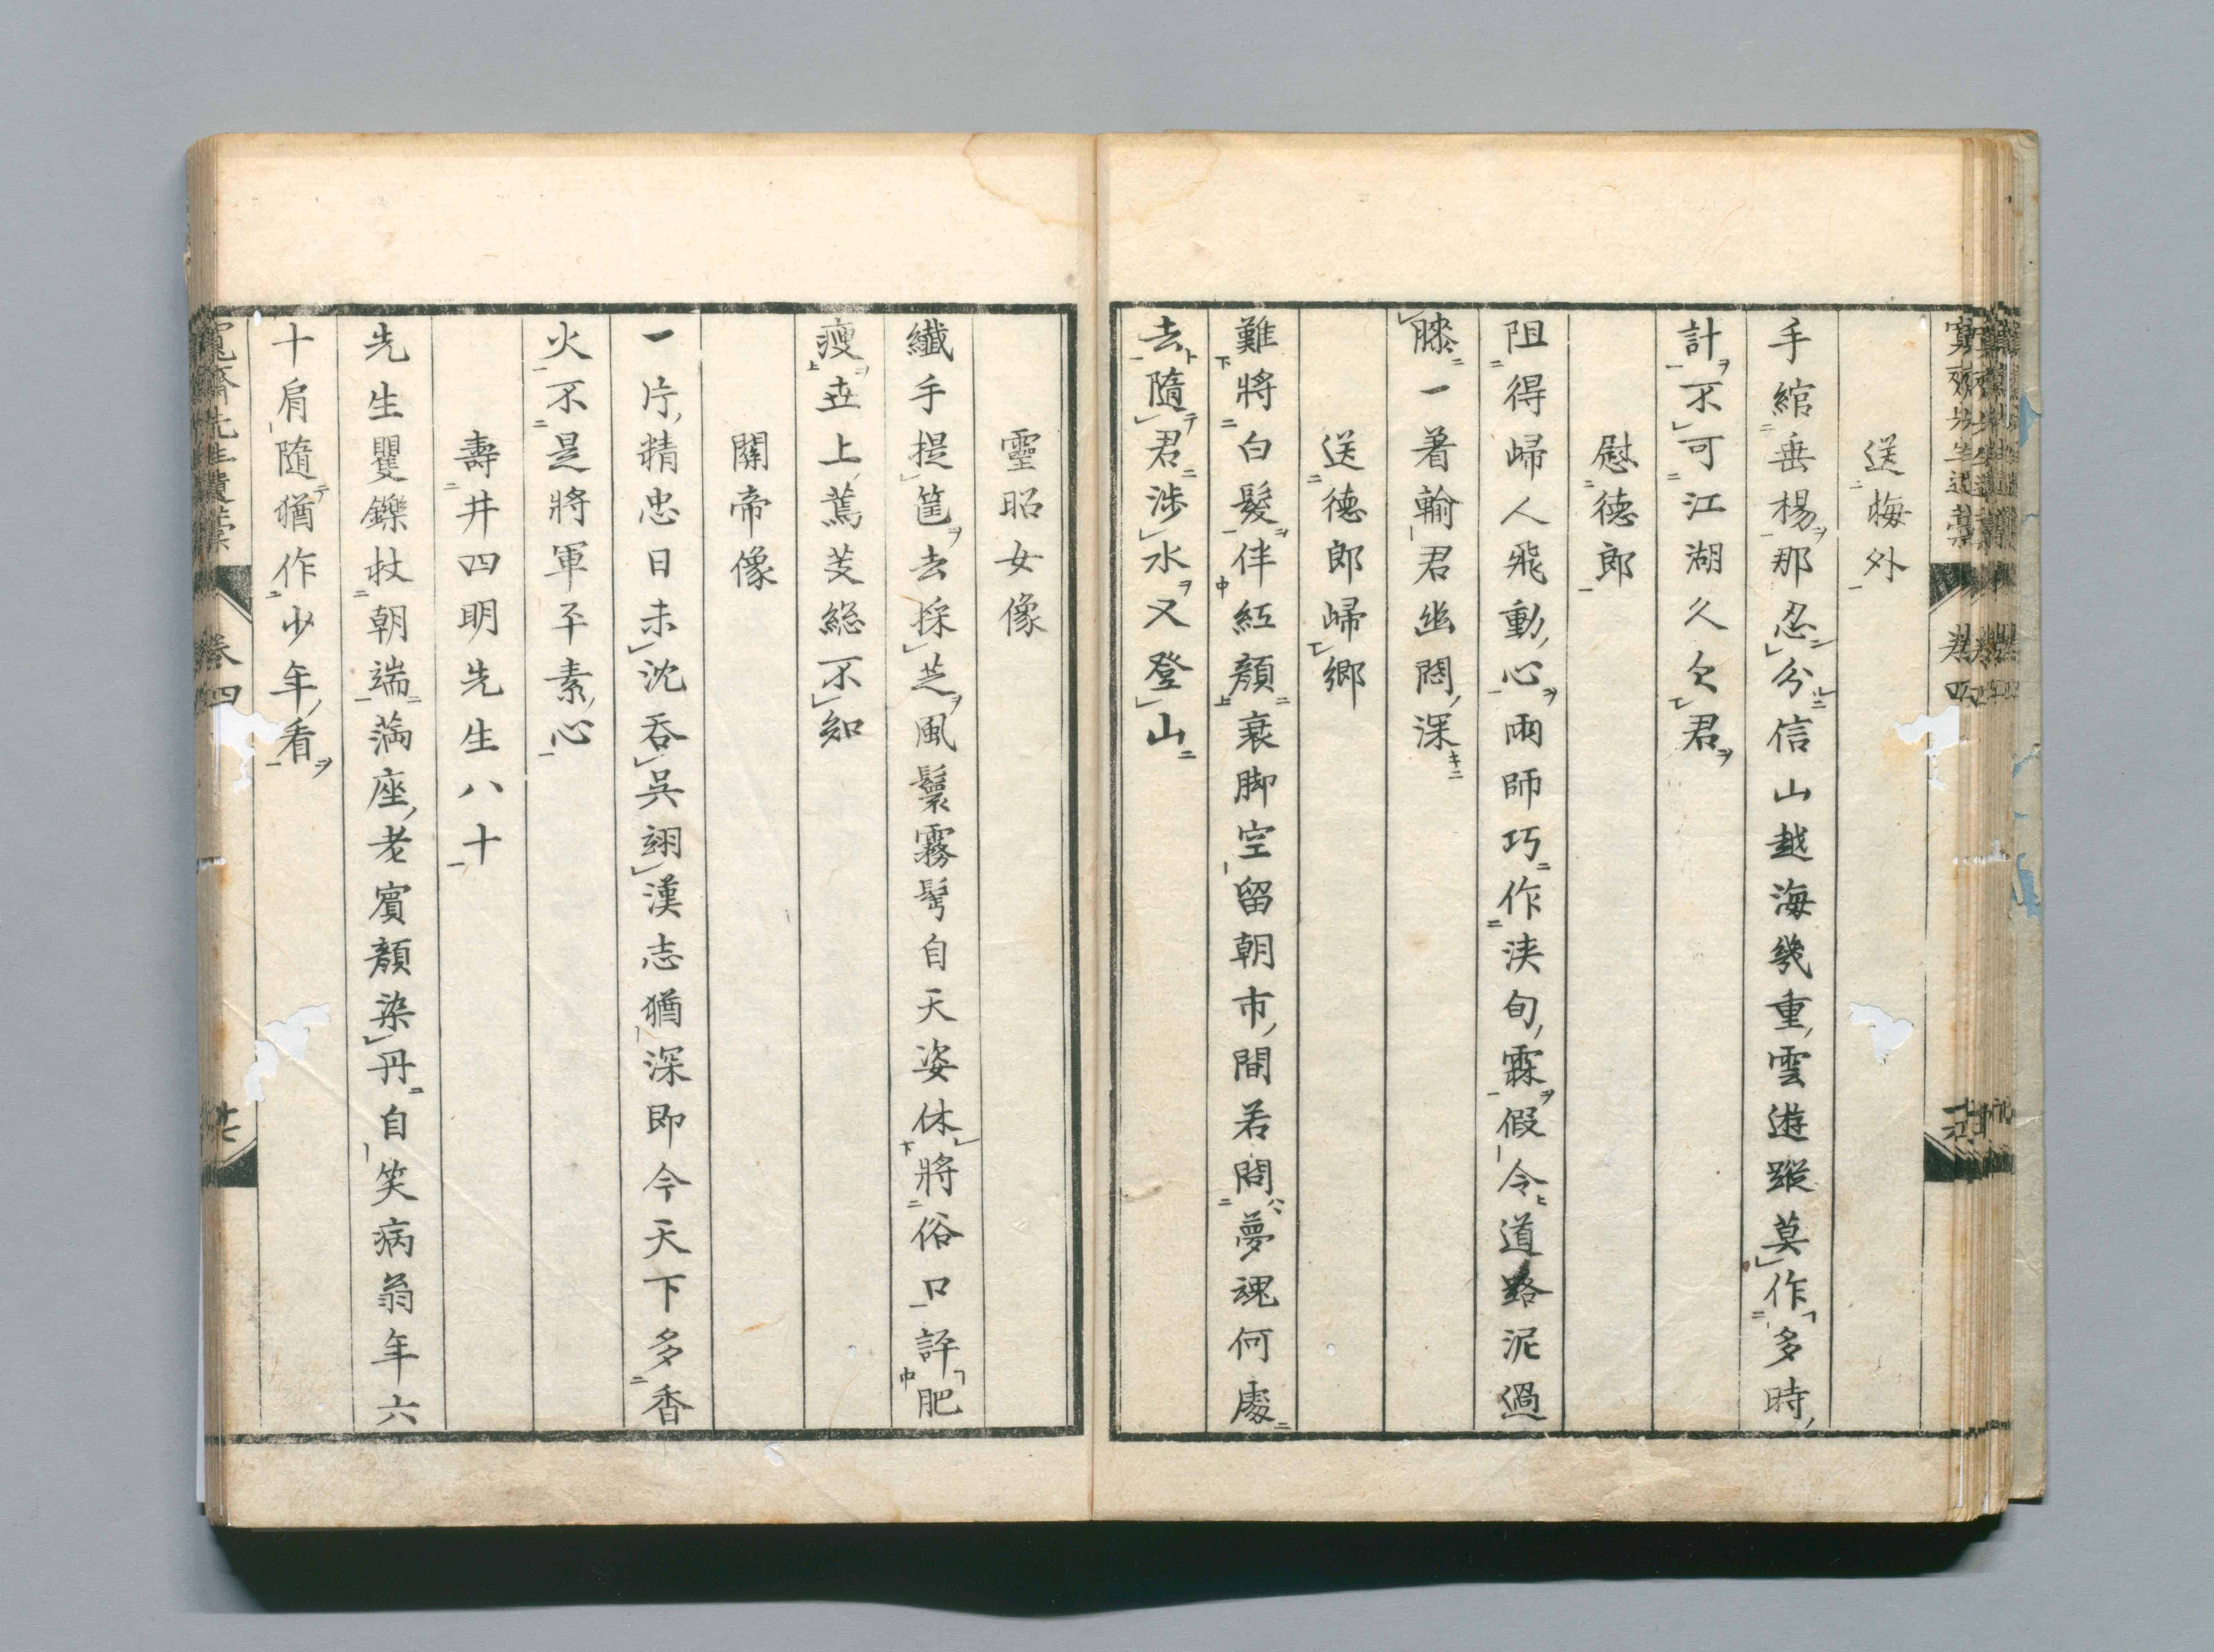 送梅外
手綰垂楊那忍分信山越海幾重雲遊蹤莫作多時
計不可江湖久欠君
慰德郎
阻得歸人飛動心雨師巧作浹旬霖假令道路泥過
膝一著輸君幽悶深
送德郎歸鄉
難將白髮伴紅顏衰脚空留朝市間若問夢魂何處
去隨君涉水又登山
靈昭女像
纖手提篚去採芝風鬟霧鬢自天姿休將俗口評肥
瘦丗上蔫芰總不知
關帝像
一片精忠日未沈吞吳翊漢志猶深即今天下多香
火不是將軍平素心
壽井四明先生八十
先生矍鑠杖朝端滿座老賓顏染丹自笑病翁年六
十肩隨猶作少年看
寬齋先生遺藁
卷四